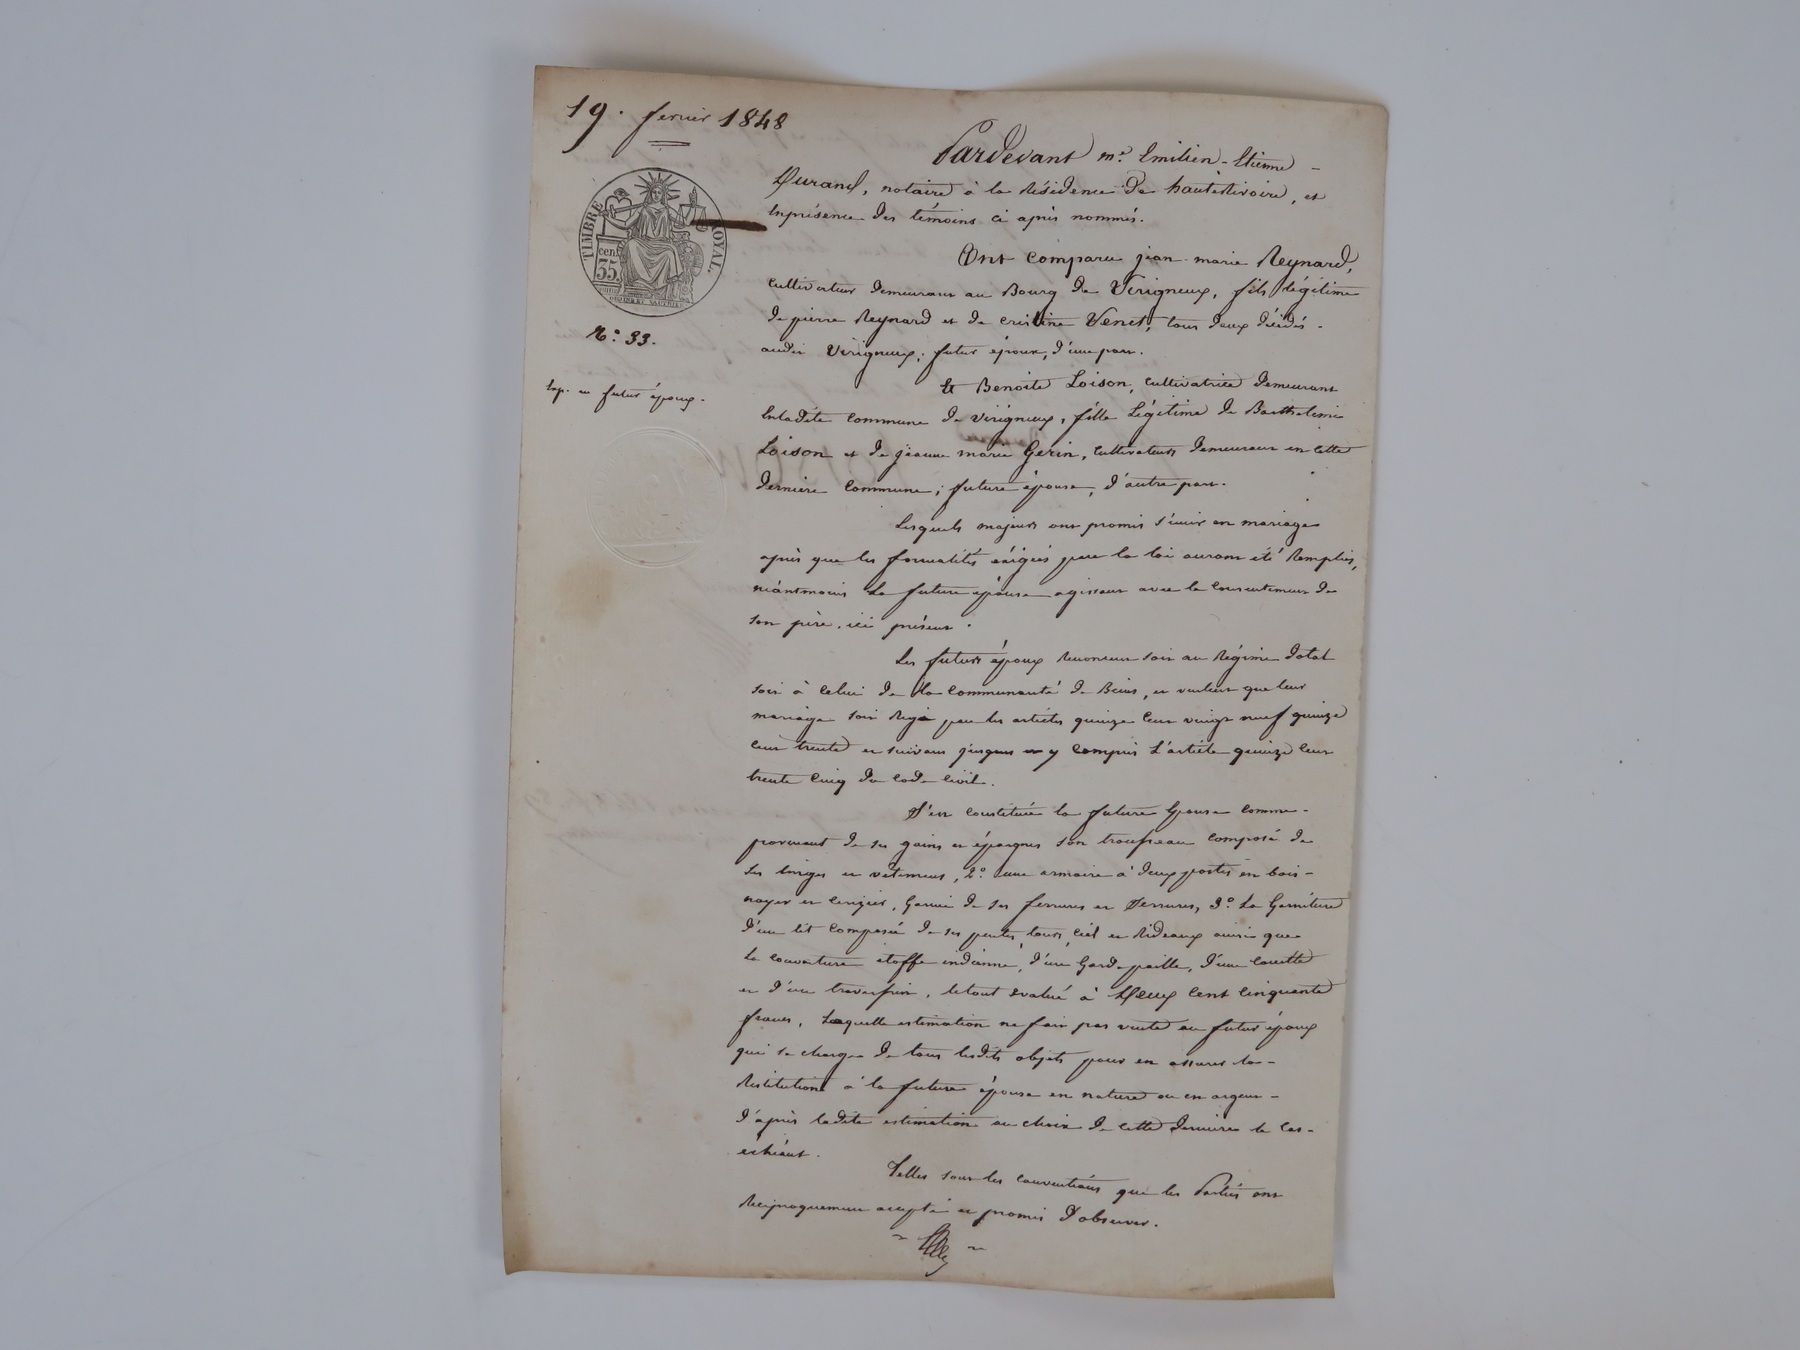 19. fevrier 1848
TIMBRE ROYAL.
35 cen.
N.º 33.
Exp. au futur époux.
Pardevant m.e Emilien-Etienne
Durand, notaire à la Résidence de hauteRivoire, et
Enprésence des témoins ci après nommés.
Ont comparu jean-marie Reynard,
cultivateur demeurant au Bourg de Virigneux, fils légitime
de pierre Reynard et de cristine Venet, tous deux décédés
audit Virigneux; futur époux, d'une part.
Et Benoite Loison, cultivatrice demeurant
Enladite commune de virigneux, fille Légitime de Barthelemi
Loison et de jeanne marie Gerin, cultivateurs demeurant en cette
dernière commune; future épouse, d'autre part.
Lesquels majeurs ont promis s'unir en mariage
après que les formalités exigées par la loi auront été Remplies,
néantmoins la future épouse agissant avec le consentement de
son père, ici présent.
Les futurs époux Renoncent soit au Régime dotal
soit à celui de la communauté de Biens, et veulent que leur
mariage soit Régi par les articles quinze cent vingt neuf quinze
cent trente et suivans jusques et y compris L'article quinze cent
trente cinq du code civil.
S'est constituée la future Epouse comme
provenant de ses gains et épargnes son trousseau composé de
ses linges et vêtemens, 2.º une armoire à deux portes en bois
noyer et cerisier, Garnie de ses ferrures et Serrures, 3.º La Garniture
d'un lit composée de ses pentes, tours, ciel et Rideaux ainsi que
la couverture étoffe indienne, d'un Garde paille, d'une couette
et d'un traversin, letout évalué à Deux cent cinquante
francs, Laquelle estimation ne fait pas vente au futur époux
qui se charge de tous lesdits objets pour en assurer la
Restitution à la future épouse en nature ou en argent
d'après ladite estimation au choix de cette dernière le cas
échéant.
Telles sont les conventions que les Parties ont
Réciproquement accepté et promis d'observer.